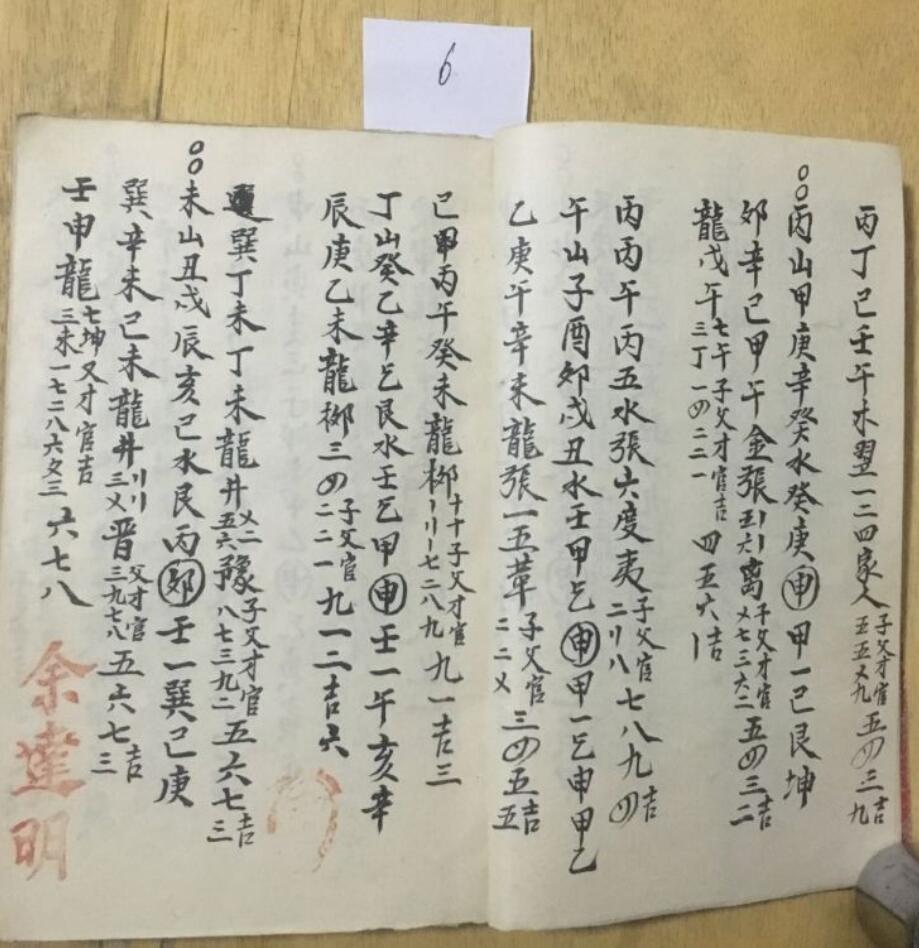 6
丙丁己壬午水翌一二四家人子父才官五五乂九五四三吉九
丙山甲庚辛癸水癸庚申甲一己艮坤
夘辛己甲午金張离子父才官乂七三六二五四三吉二
龍戊午七午子父才官吉三丁一四二二一四五六吉
丙丙午丙五水張六度夷子父官二〢八七八九四吉
午山子酉夘戌丑水壬甲乞申甲一乞申甲乙
乙庚午辛未龍張一五革子父官二二乂三四五吉五
己甲丙午癸未龍栁子父才官七二八九九一吉三
丁山癸乙辛乞艮水壬乞甲申壬一午亥辛
辰庚乙未龍栁三四子父官二二一九一二吉六
巽丁未丁未龍井乂二五六豫子父才官八七三九二五六七吉三
未山丑戌辰亥己水艮丙夘壬一巽己庚
巽辛未己未龍井〢〢三乂晋父才官三九七八五六七吉三
壬申龍七坤父才官吉三未一七二八六夊三六七八
余達明